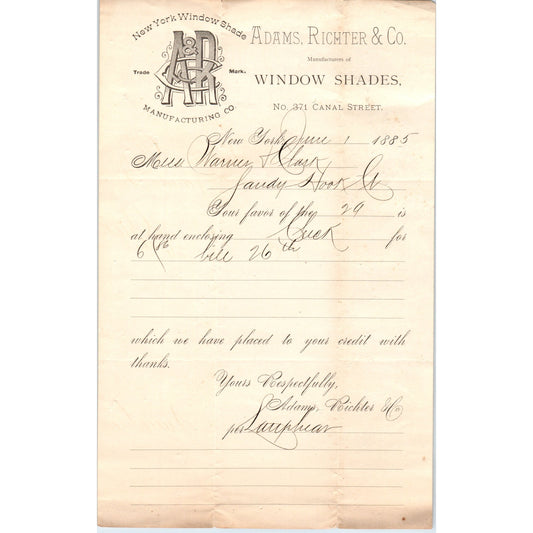 New York Window Shade
Adams, Richter & Co.
Manufacturers of
Trade Mark.
Window Shades,
Manufacturing Co.
No. 371 Canal Street.
New York, June 1 1885
Mess Warner & Clark
Sandy Hook Ct
Your favor of the 29 is
at hand enclosing Check for
bill 26th
which we have placed to your credit with
thanks.
Yours Respectfully,
Adams, Richter & Co
per